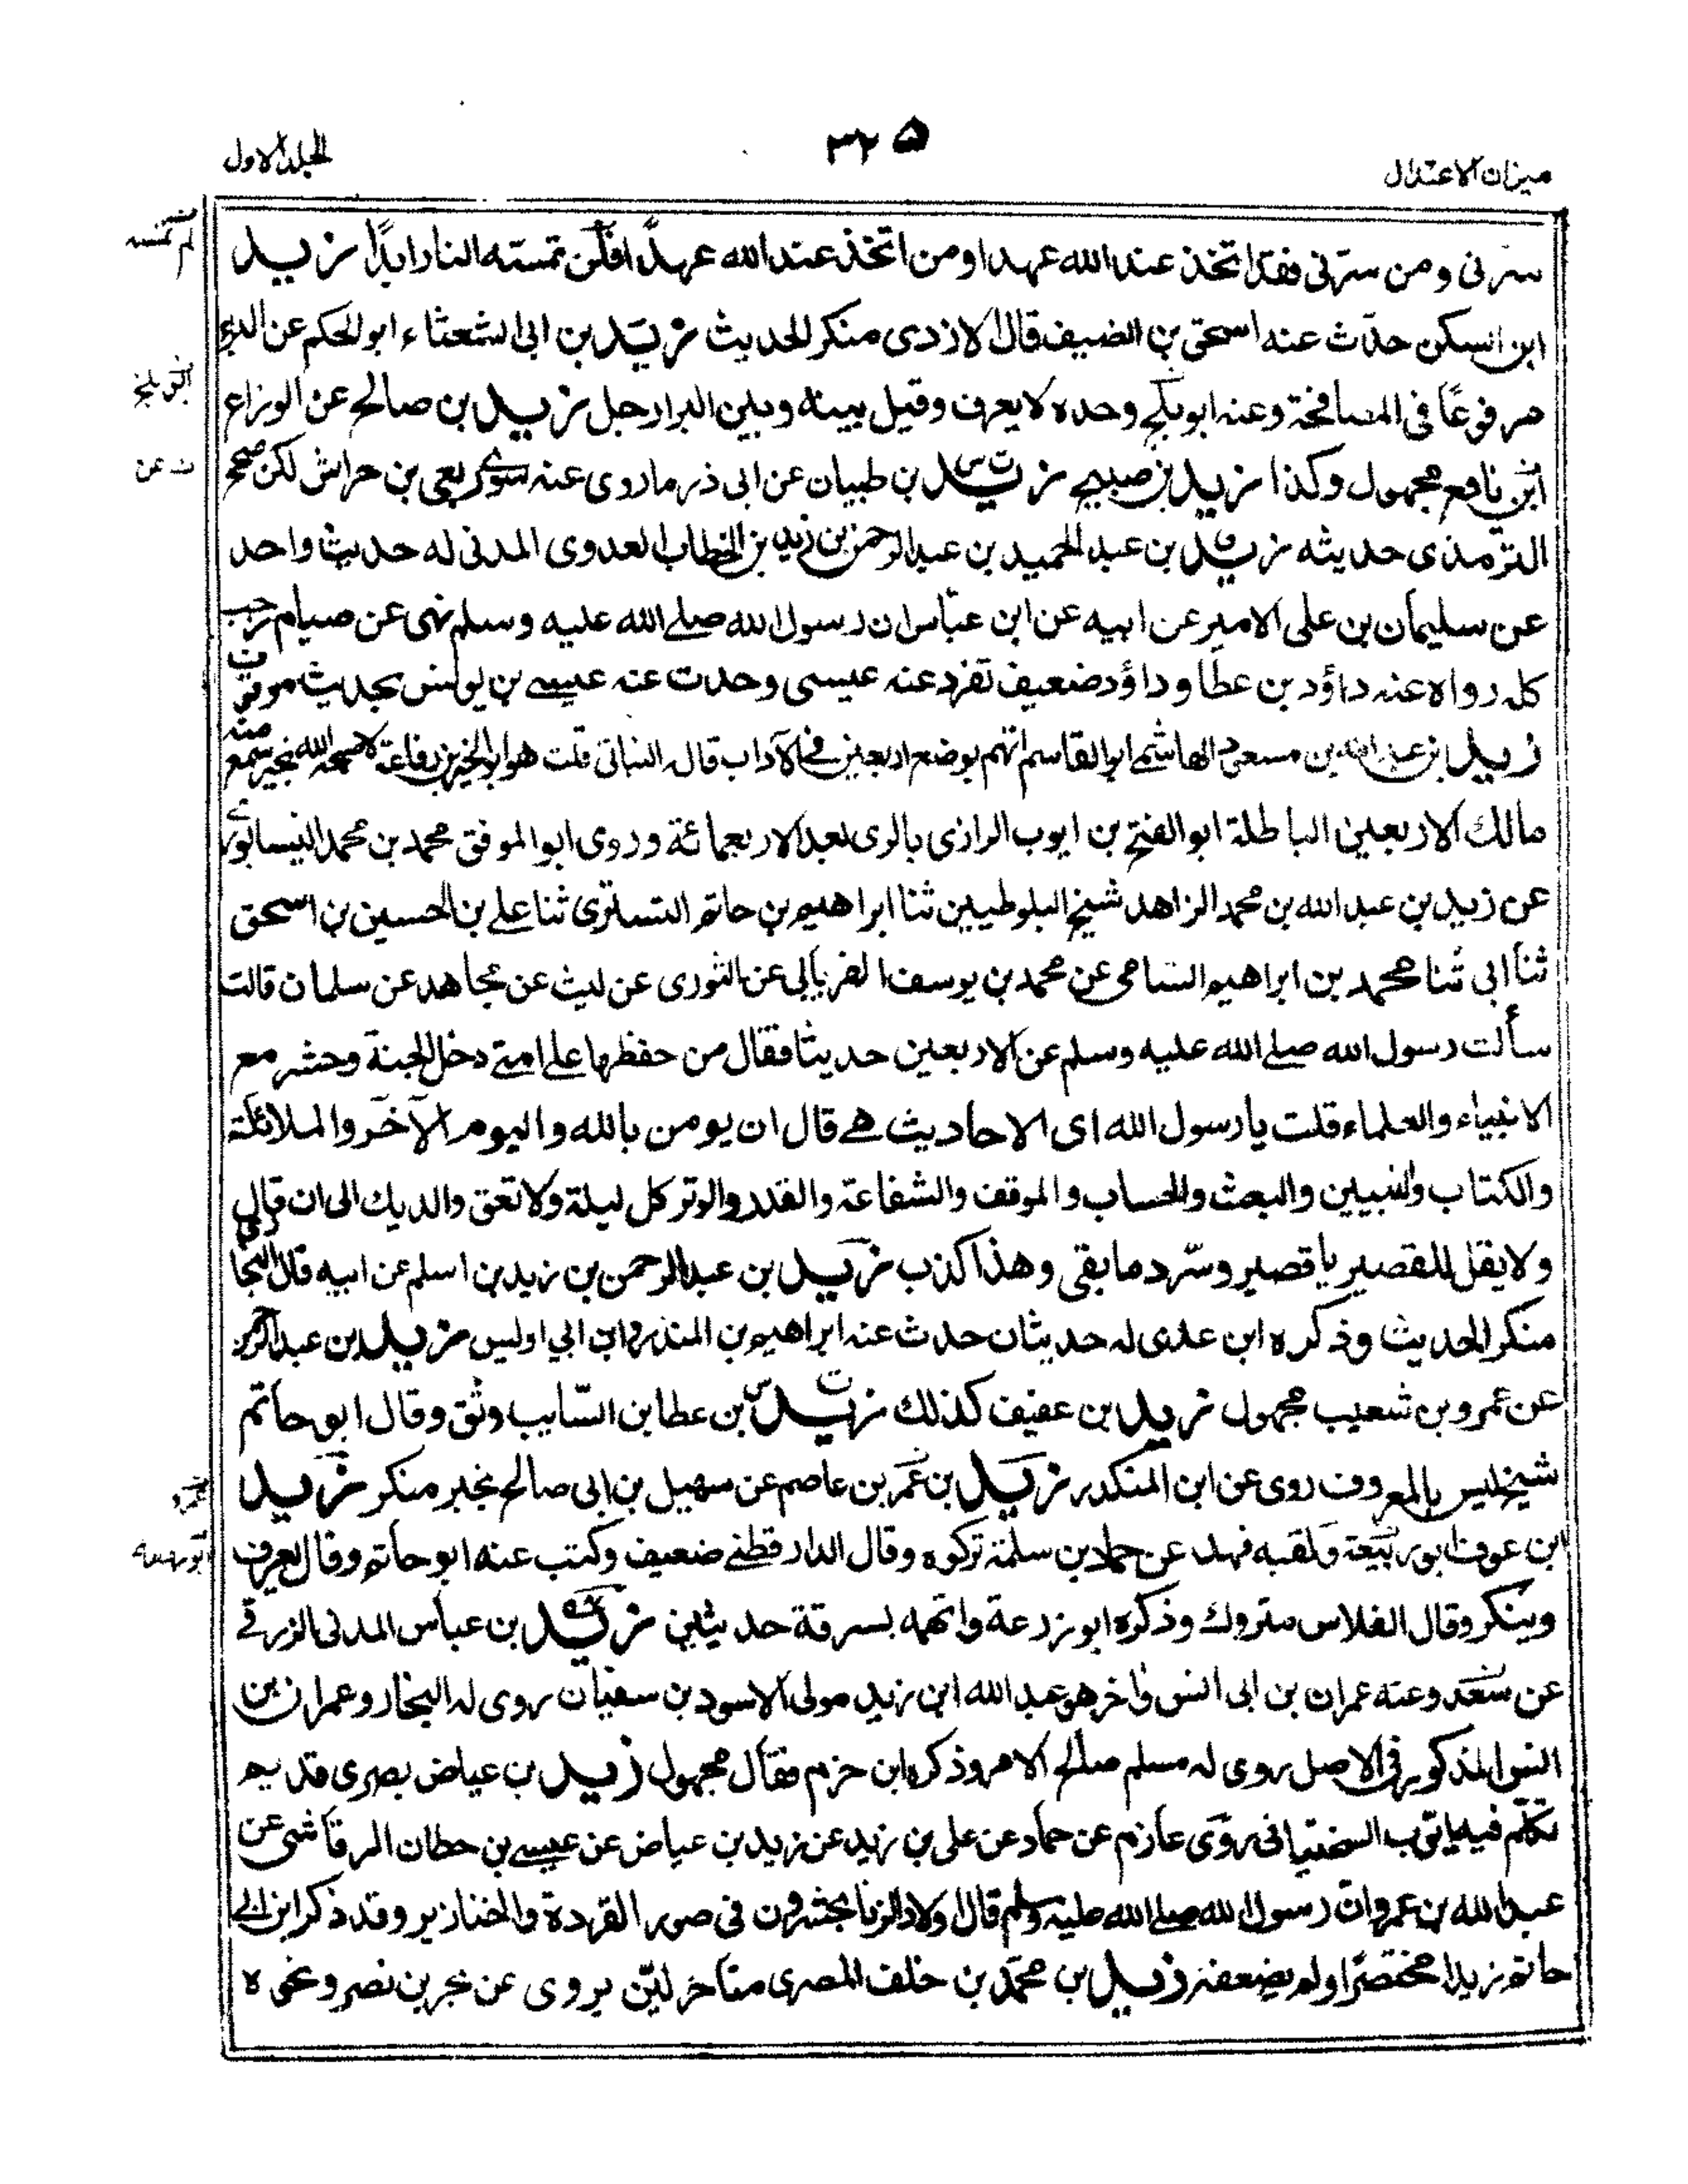 ميزان الاعتدال
٣٢٥
المجلد الاول
سرنى ومن سرنى فقد اتخذ عند الله عهدا ومن اتخذ عند الله عهدًا فلن تمسته النار ابدًا زيد
لم تمسه
ابن السكن حدّث عنه اسحق بن الضيف قال الازدى منكر الحديث زيد بن ابى الشعثاء ابو الحكم عن البراء
مرفوعًا فى المصافحة وعنه ابو بلج وحده لا يعرف وقيل بينه وبين البرا رجل زيد بن صالح عن الوزاع
ابو بلج
ابن نافع مجهول وكذا زيد بن صبيح زيد بن ظبيان عن ابى ذر ما روى عنه سوى ربعى بن حراش لكن صحح
ت عن
الترمذى حديثه زيد بن عبد الحميد بن عبد الرحمن بن زيد بن الخطاب العدوى المدنى له حديث واحد
عن سليمان بن على الامير عن ابيه عن ابن عباس ان رسول الله صلے الله عليه وسلم نهى عن صيام رجب
كله رواه عنه داؤد بن عطا وداؤد ضعيف تفرد عنه عيسى وحدث عنه عيسے بن يونس بحديث موقوف
زيد بن عبد الله بن مسعود الهاشمے ابو القاسم اتهم بوضع اربعين فى الآداب قاله النباتى قلت هو ابو الخير بن رفاعة لا صبحه الله بخير سمع منه
مالك الاربعين الباطلة ابو الفتح بن ايوب الرازى بالرى بعد الاربعمائة وروى ابو الموفق محمد بن محمد النيسابورى
عن زيد بن عبد الله بن محمد الزاهد شيخ البلوطيين ثنا ابراهيم بن حاتم التسترى ثنا علے بن الحسين بن اسحق
ثنا ابى ثنا محمد بن ابراهيم الشامى عن محمد بن يوسف الفريابى عن الثورى عن ليث عن مجاهد عن سلمان قالت
سألت رسول الله صلے الله عليه وسلم عن الاربعين حديثا فقال من حفظها علے امتے دخل الجنة وحشر مع
الانبياء والعلماء قلت يا رسول الله اى الاحاديث هے قال ان يومن بالله واليوم الآخر والملائكة
والكتاب والنبيين والبعث والحساب والموقف والشفاعة والقدر والوتر كل ليلة ولا تعق والديك الى ان قال
ولا يقل للقصير يا قصير وسّرد ما بقى وهذا كذب زيد بن عبد الرحمن بن زيد بن اسلم عن ابيه قال البخارى
منكر الحديث وذكره ابن عدى له حديثان حدث عنه ابراهيم بن المنذر وابن ابى اوليس زيد بن عبد الرحمن
عن عمرو بن شعيب مجهول زيد بن عفيف كذلك زيد بن عطا بن السّايب وثق وقال ابو حاتم
شيخ ليس بالمعروف روى عن ابن المنكدر زيد بن عمر بن عاصم عن سهيل بن ابى صالح بخبر منكر زيد
عمرو
ابن عوف ابو ربيعة ولقبه فهد عن حماد بن سلمة تركوه وقال الدارقطنے ضعيف وكتب عنه ابو حاتم وقال يعرف
وينكر وقال الفلاس متروك وذكره ابو زرعة واتهمه بسرقة حديثين زيد بن عباس المدنى الزرقے
عن سعد وعنه عمران بن ابى انس واخر هو عبد الله ابن زيد مولى الاسود بن سفيان روى له البخار وعمران بن
انس المذكور فى الاصل روى له مسلم صالح الامر وذكره ابن حزم فقال مجهول زيد بن عياض بصرى قديم
تكلّم فيه ايوب السختيانى روى عارم عن حماد عن على بن زيد عن زيد بن عياض عن عيسے بن حطان الرقاشى عن
عبد الله بن عمرو ان رسول الله صلے الله عليه وسلم قال اولاد الزنا يحشرون فى صور القردة والخنازير وقد ذكر ابن ابى
حاتم زيدا مختصرًا ولم يضعفه زيد بن محمد بن خلف المصرى متأخر ليّن يروى عن بحر بن نصر ونحوه